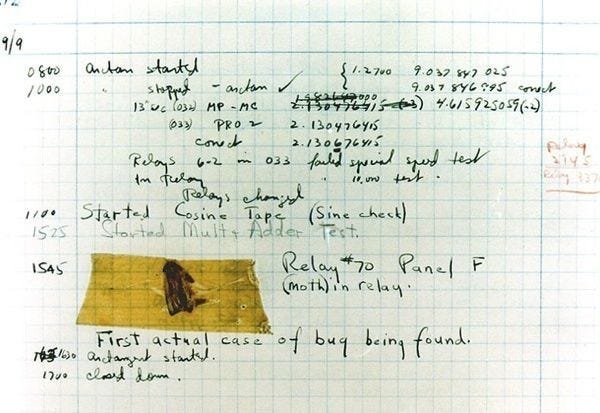 9/9
0800 arctan started
1000 " stopped - arctan ✓ { 1.2700 9.037 847 025
9.037 846 995 correct
13"uc (032) MP-MC 2.130476415 (-3) 4.615925059(-2)
(033) PRO 2 2.130476415
correct 2.130676415
Relays 6-2 in 033 failed special speed test
In Relay " 10.000 test.
Relays changed
1100 Started Cosine Tape (Sine check)
1525 Started Mult+Adder Test.
1545 Relay #70 Panel F
(moth) in relay.
First actual case of bug being found.
1630 arctangent started.
1700 closed down.
Relay
Relay